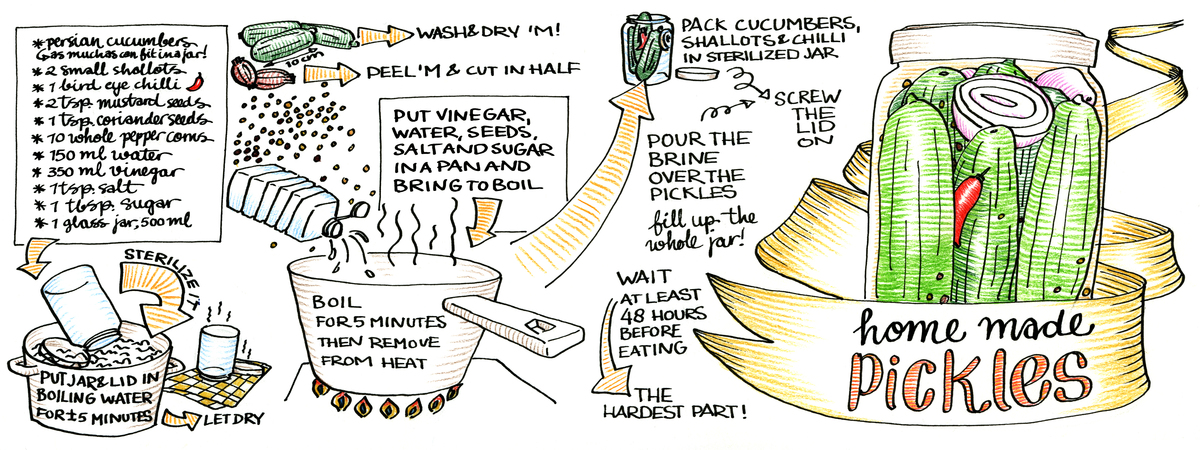 * persian cucumbers
(as muchas can fit in a jar!)
* 2 small shallots
* 1 bird eye chilli
* 2 tsp. mustard seeds
* 1 tsp. coriander seeds
* 10 whole pepper corns
* 150 ml water
* 350 ml vinegar
* 1 tsp. salt
* 1 tbsp. sugar
* 1 glass jar, 500 ml
STERILIZE IT
PUT JAR & LID IN
BOILING WATER
FOR ±5 MINUTES
LET DRY
10 cm
WASH & DRY 'M!
PEEL 'M & CUT IN HALF
PUT VINEGAR,
WATER, SEEDS,
SALT AND SUGAR
IN A PAN AND
BRING TO BOIL
BOIL
FOR 5 MINUTES
THEN REMOVE
FROM HEAT
PACK CUCUMBERS,
SHALLOTS & CHILLI
IN STERILIZED JAR
POUR THE
BRINE
OVER THE
PICKLES
fill up the
whole jar!
SCREW
THE
LID
ON
WAIT
AT LEAST
48 HOURS
BEFORE
EATING
THE
HARDEST PART!
home made
PICKLES